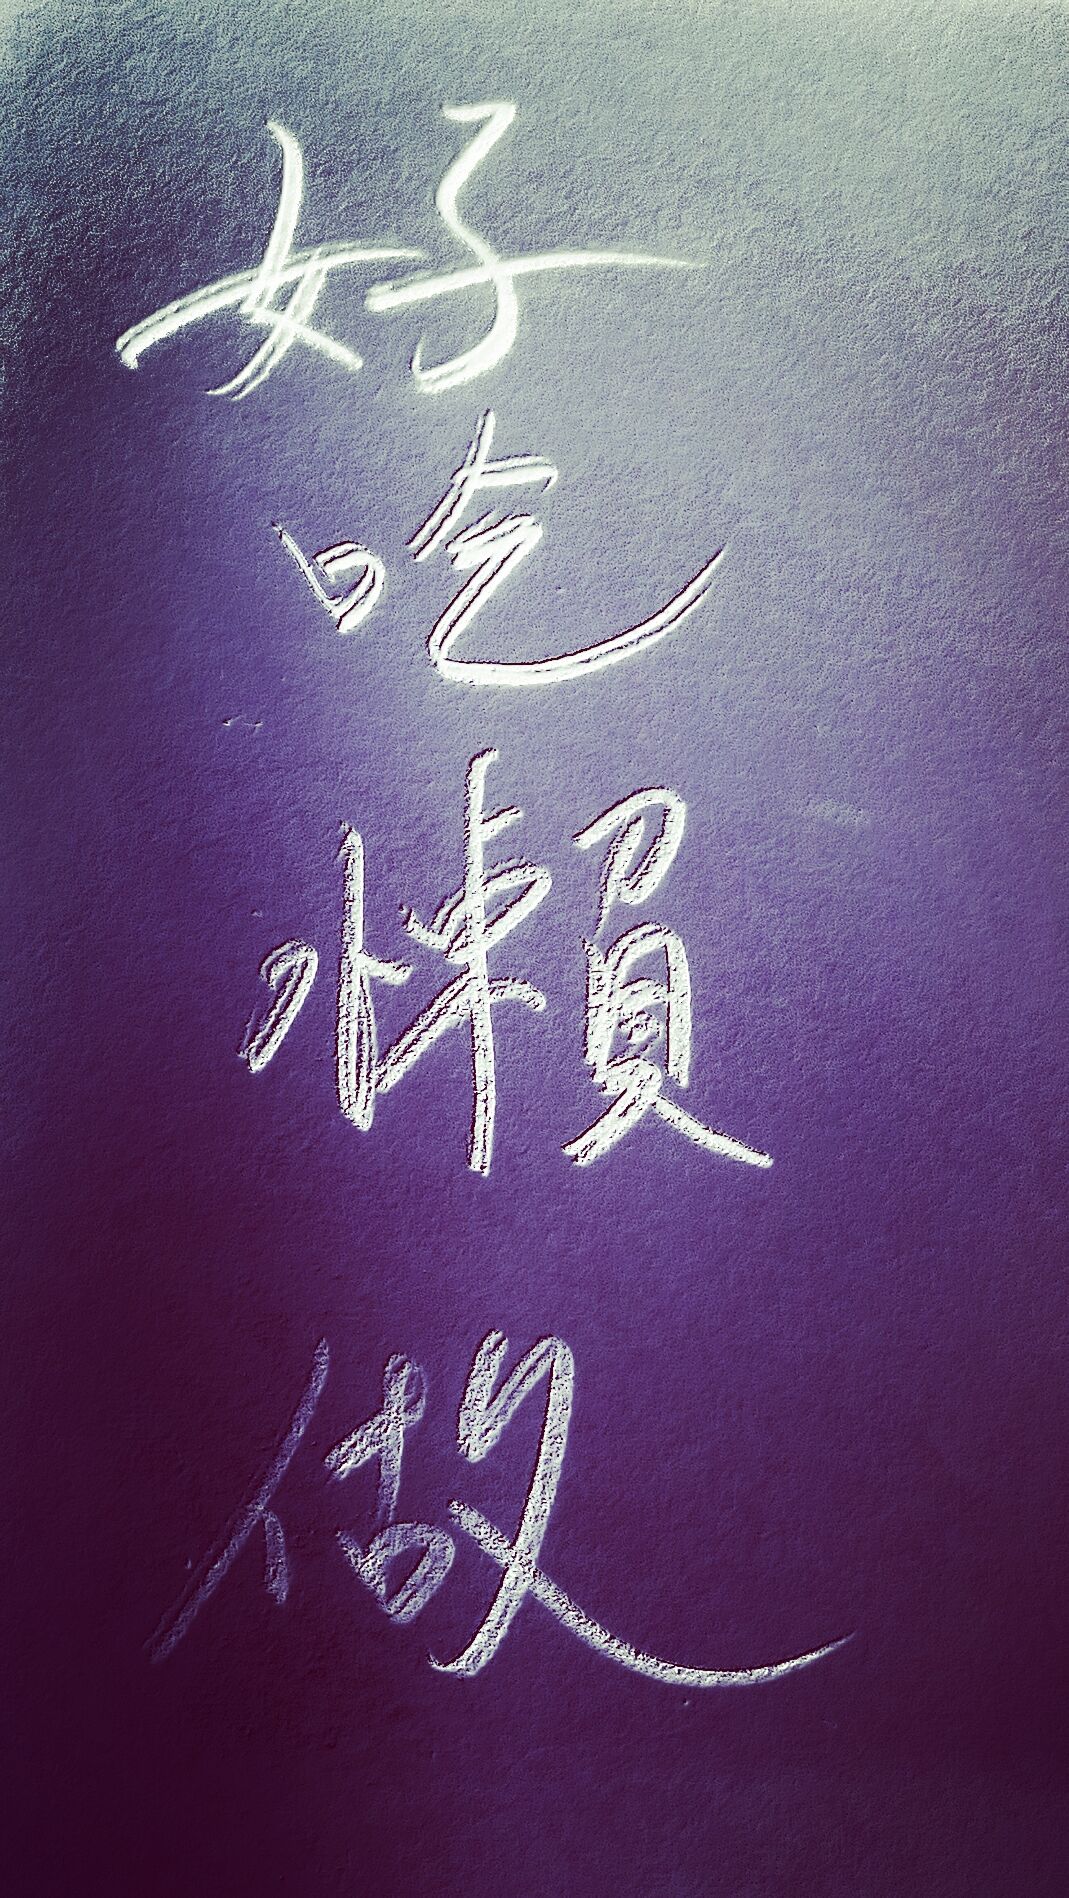 好吃懶做